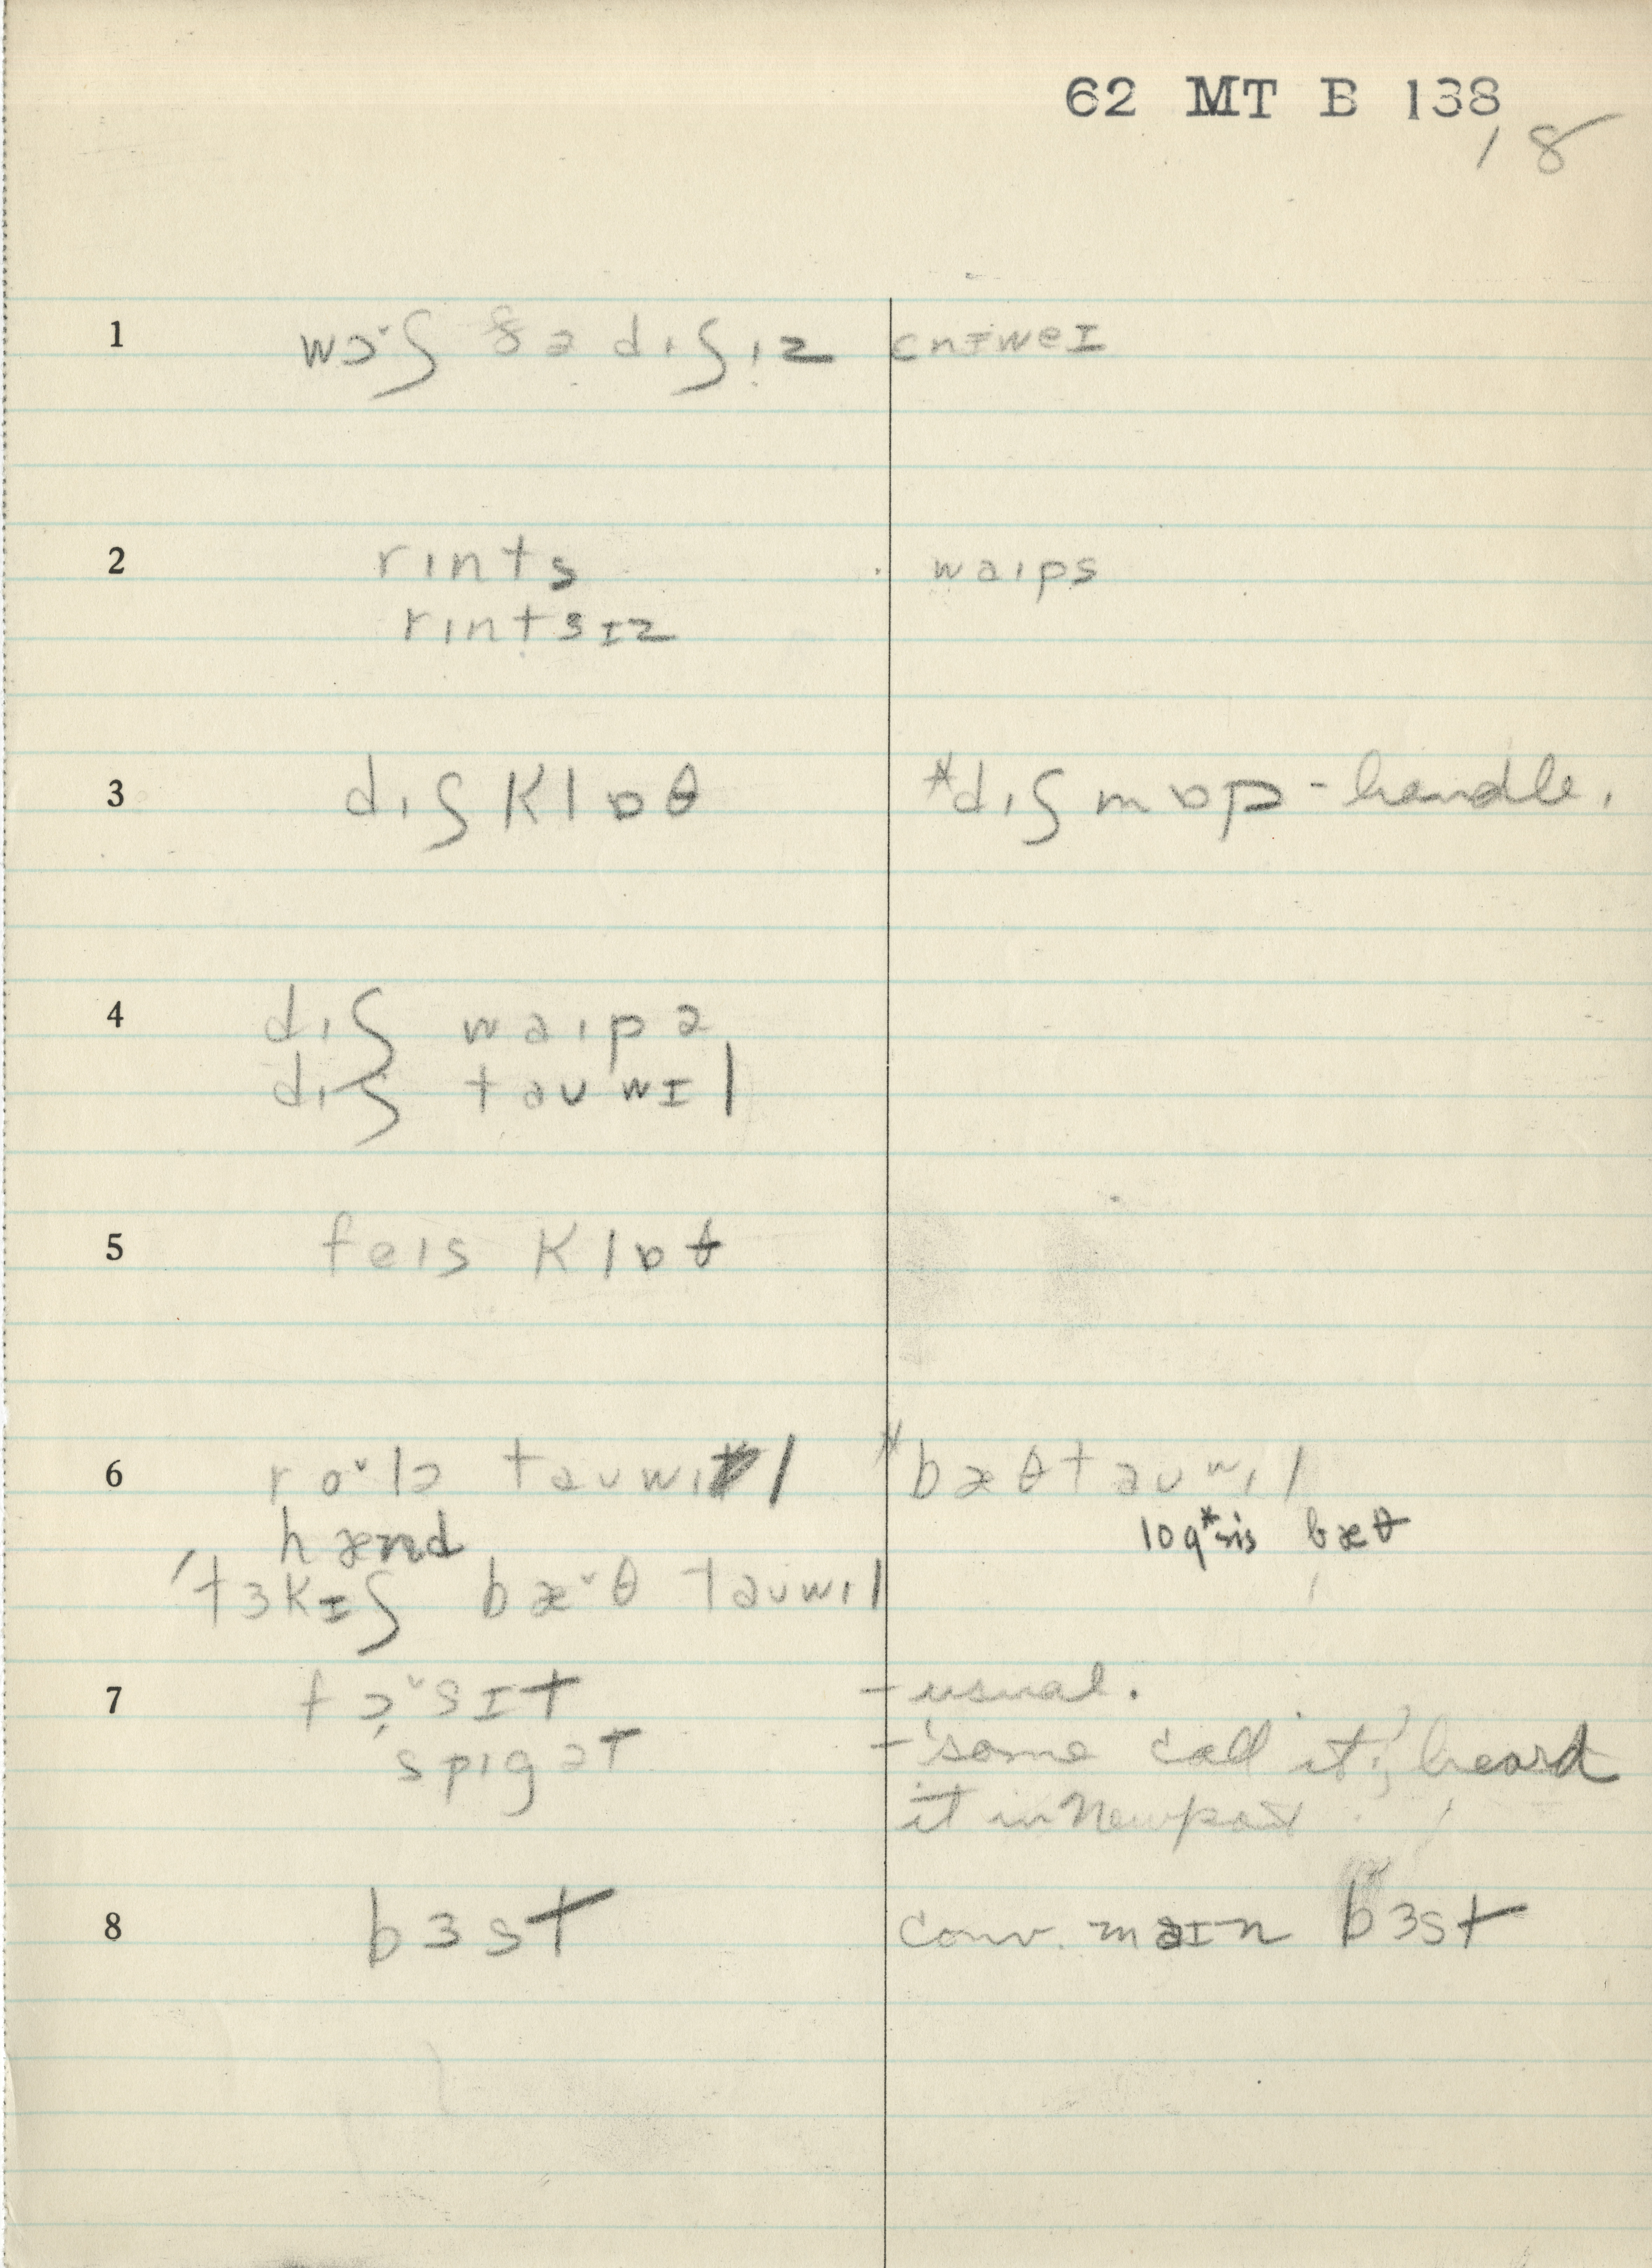 62 MT B 138
18
1 wɔˇʃ ðə dɪʃɪz ɛnɪweɪ
2 rɪnts waɪps
rɪntsɪz
3 dɪʃ klɒθ *dɪʃ mɒp - handle.
4 dɪʃ waɪpə
dɪʃ tauwɪl
5 feɪs klɒθ
6 roˇlə tauwɪl *bæθtauwɪl
hænd
'tɜkɪʃ bæˇθ tauwɪl
7 fɔˇsɪt - usual.
spɪgət - 'some call it', heard
it in Newport
8 bɜst conv. maɪn bɜst